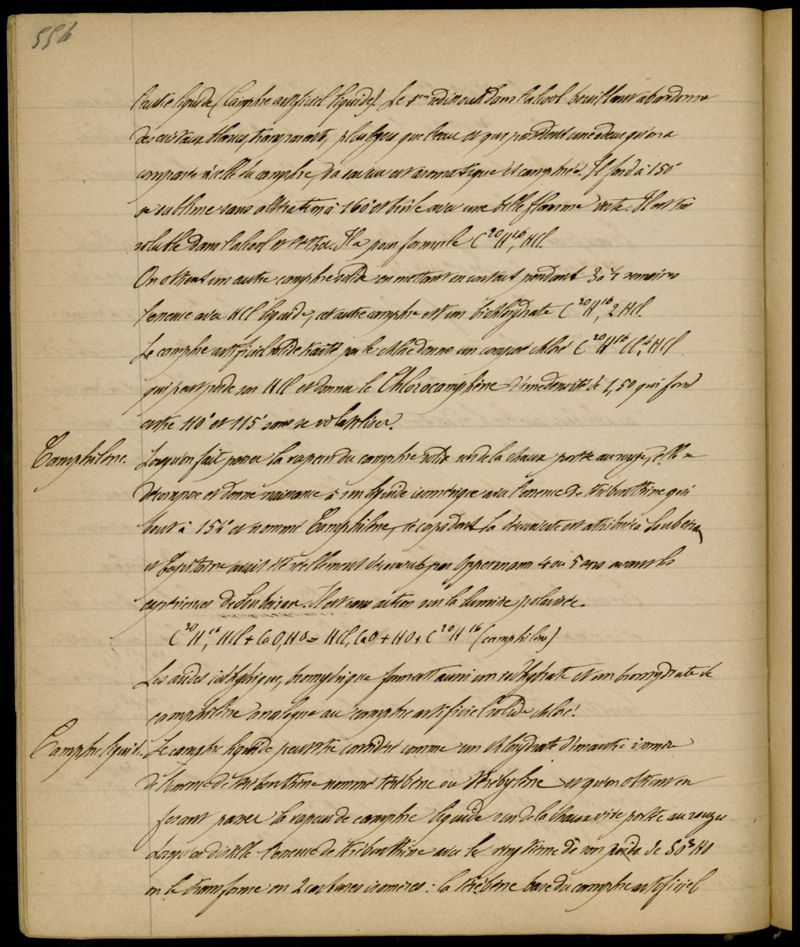 554
l'autre liquide (Camphre artificiel liquide). Le 1er redissous dans l'alcool bouillant abandonne
des cristaux blancs transparents, plus légers que l'eau et qui possèdent une odeur qu'on a
comparée à celle du camphre, sa saveur est aromatique et camphrée. Il fond à 150°
se sublime sans altération à 160° et brûle avec une belle flamme verte. Il est très
soluble dans l'alcool et l'éther. Il a pour formule C20H16, HCl.
On obtient un autre camphre solide en mettant en contact pendant 30 à semaines
l'essence avec HCl liquide, cet autre camphre est un bichlorhydrate C20H16, 2 HCl.
Le camphre artificiel solide traité par le chlore donne un composé chloré C20H16Cl4 HCl
qui peut perdre son HCl et donner le Chlorocamphène d'une densité de 1,50 qui fond
entre 110° et 115° sans se volatiliser.
Camphilène. Lorsqu'on fait passer la vapeur du camphre solide sur de la chaux portée au rouge, elle se
décompose et donne naissance à un liquide isomérique avec l'essence de térébenthine qui
bout à 156° et nommé Camphilène, cependant la découverte est attribuée à Soubeiran
et Capitaine avait été réellement découverte par Oppermann 4 ou 5 ans avant les
expériences de Soubeiran. Il est sans action sur la lumière polarisée.
C20H16, HCl + CaO, HO = HCl, CaO + HO + C20H16 (camphilène)
Les acides iodhydrique, bromhydrique forment aussi un iodhydrate et un bromhydrate de
camphilène analogue au camphre artificiel solide chloré.
Camphre liquide. Le camphre liquide peut être considéré comme un chlorhydrate d'un autre isomère
de l'essence de térébenthine nommé térébène ou Térébylène et qu'on obtient en
faisant passer la vapeur de camphre liquide sur de la chaux vive portée au rouge
Lorsqu'on distille l'essence de térébenthine avec le vingtième de son poids de SO3HO
on la transforme en 2 carbures isomères : la térébène base du camphre artificiel